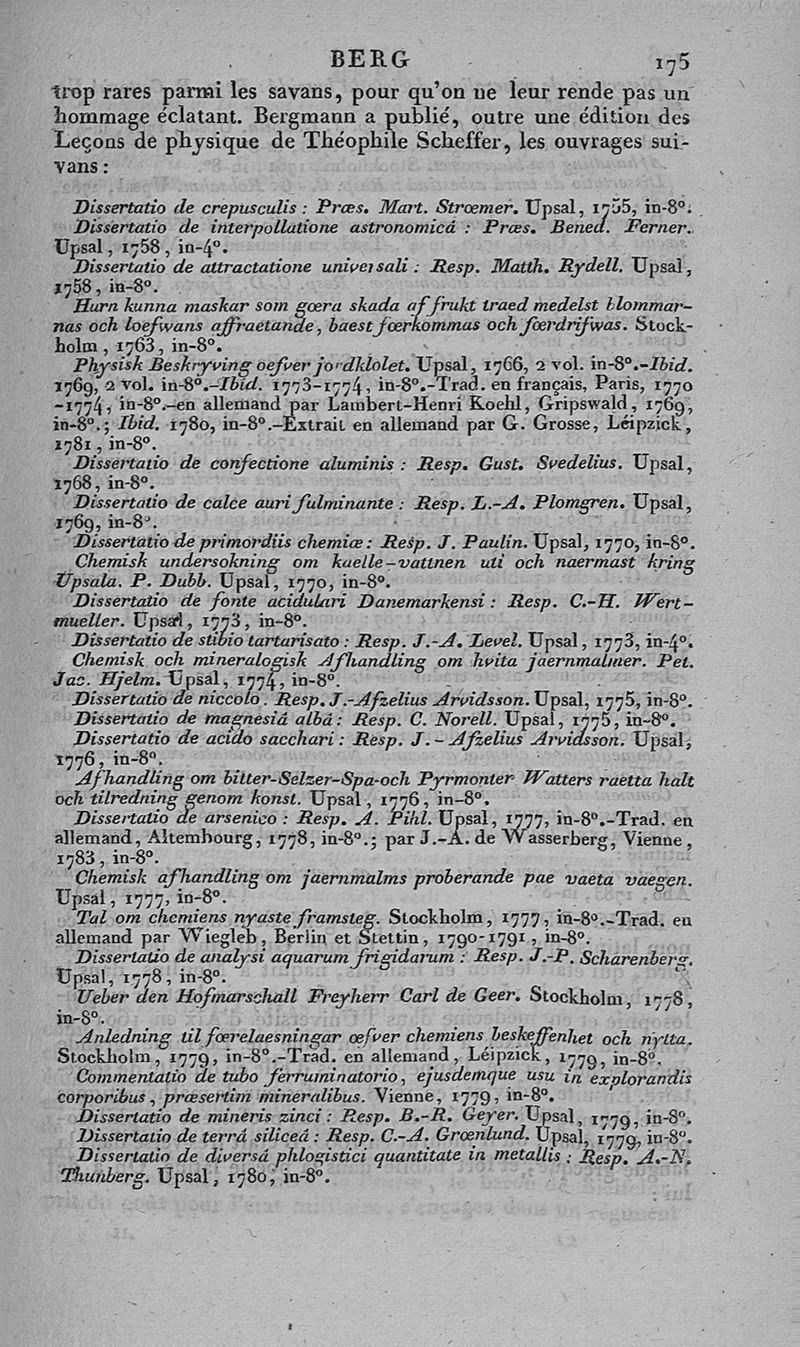 BERG 175
trop rares parmi les savans, pour qu'on ne leur rende pas un
hommage éclatant. Bergmann a publié, outre une édition des
Leçons de physique de Théophile Scheffer, les ouvrages sui-
vans :
Dissertatio de crepusculis : Præs. Mart. Strœmer. Upsal, 1755, in-8°.
Dissertatio de interpollatione astronomicá : Præs. Bened. Ferner.
Upsal, 1758, in-4°.
Dissertatio de attractatione universali : Resp. Matth. Rydell. Upsal,
1758, in-8°.
Hurn kunna maskar som gœra skada af frukt traed medelst blommar-
nas och loefwans affraetande, baest fœrkommas och fœrdrifwas. Stock-
holm, 1763, in-8°.
Physisk Beskryving oefver jordklolet. Upsal, 1766, 2 vol. in-8°.-Ibid.
1769, 2 vol. in-8°.-Ibid. 1773-1774, in-8°.-Trad. en français, Paris, 1770
-1774, in-8°.-en allemand par Lambert-Henri Koehl, Gripswald, 1769,
in-8°.; Ibid. 1780, in-8°.-Extrait en allemand par G. Grosse, Léipzick,
1781, in-8°.
Dissertatio de confectione aluminis : Resp. Gust. Svedelius. Upsal,
1768, in-8°.
Dissertatio de calce auri fulminante : Resp. L.-A. Plomgren. Upsal,
1769, in-8°.
Dissertatio de primordiis chemiæ : Resp. J. Paulin. Upsal, 1770, in-8°.
Chemisk undersokning om kaelle-vattnen uti och naermast kring
Upsala. P. Dubb. Upsal, 1770, in-8°.
Dissertatio de fonte acidulari Danemarkensi : Resp. C.-H. Wert-
mueller. Upsal, 1773, in-8°.
Dissertatio de stibio tartarisato : Resp. J.-A. Level. Upsal, 1773, in-4°.
Chemisk och mineralogisk Afhandling om hvita jaernmalmer. Pet.
Jac. Hjelm. Upsal, 1774, in-8°.
Dissertatio de niccolo. Resp. J.-Afzelius Arvidsson. Upsal, 1775, in-8°.
Dissertatio de magnesiá albá : Resp. C. Norell. Upsal, 1775, in-8°.
Dissertatio de acido sacchari : Resp. J.-Afzelius Arvidsson. Upsal,
1776, in-8°.
Afhandling om bitter-Selzer-Spa-och Pyrmonter Watters raetta halt
och tilredning genom konst. Upsal, 1776, in-8°.
Dissertatio de arsenico : Resp. A. Pihl. Upsal, 1777, in-8°.-Trad. en
allemand, Altembourg, 1778, in-8°.; par J.-A. de Wasserberg, Vienne,
1783, in-8°.
Chemisk afhandling om jaernmalms proberande pae vaeta vaegen.
Upsal, 1777, in-8°.
Tal om chemiens nyaste framsteg. Stockholm, 1777, in-8°.-Trad. en
allemand par Wiegleb, Berlin et Stettin, 1790-1791, in-8°.
Dissertatio de analysi aquarum frigidarum : Resp. J.-P. Scharenberg.
Upsal, 1778, in-8°.
Ueber den Hofmarschall Freyherr Carl de Geer. Stockholm, 1778,
in-8°.
Anledning til fœrelaesningar œfver chemiens beskeffenhet och nytta.
Stockholm, 1779, in-8°.-Trad. en allemand, Léipzick, 1779, in-8°.
Commentatio de tubo ferruminatorio, ejusdemque usu in explorandis
corporibus, præsertim mineralibus. Vienne, 1779, in-8°.
Dissertatio de mineris zinci : Resp. B.-R. Geyer. Upsal, 1779, in-8°.
Dissertatio de terrá siliceá : Resp. C.-A. Grœnlund. Upsal, 1779, in-8°.
Dissertatio de diversá phlogistici quantitate in metallis : Resp. A.-N.
Thunberg. Upsal, 1780, in-8°.